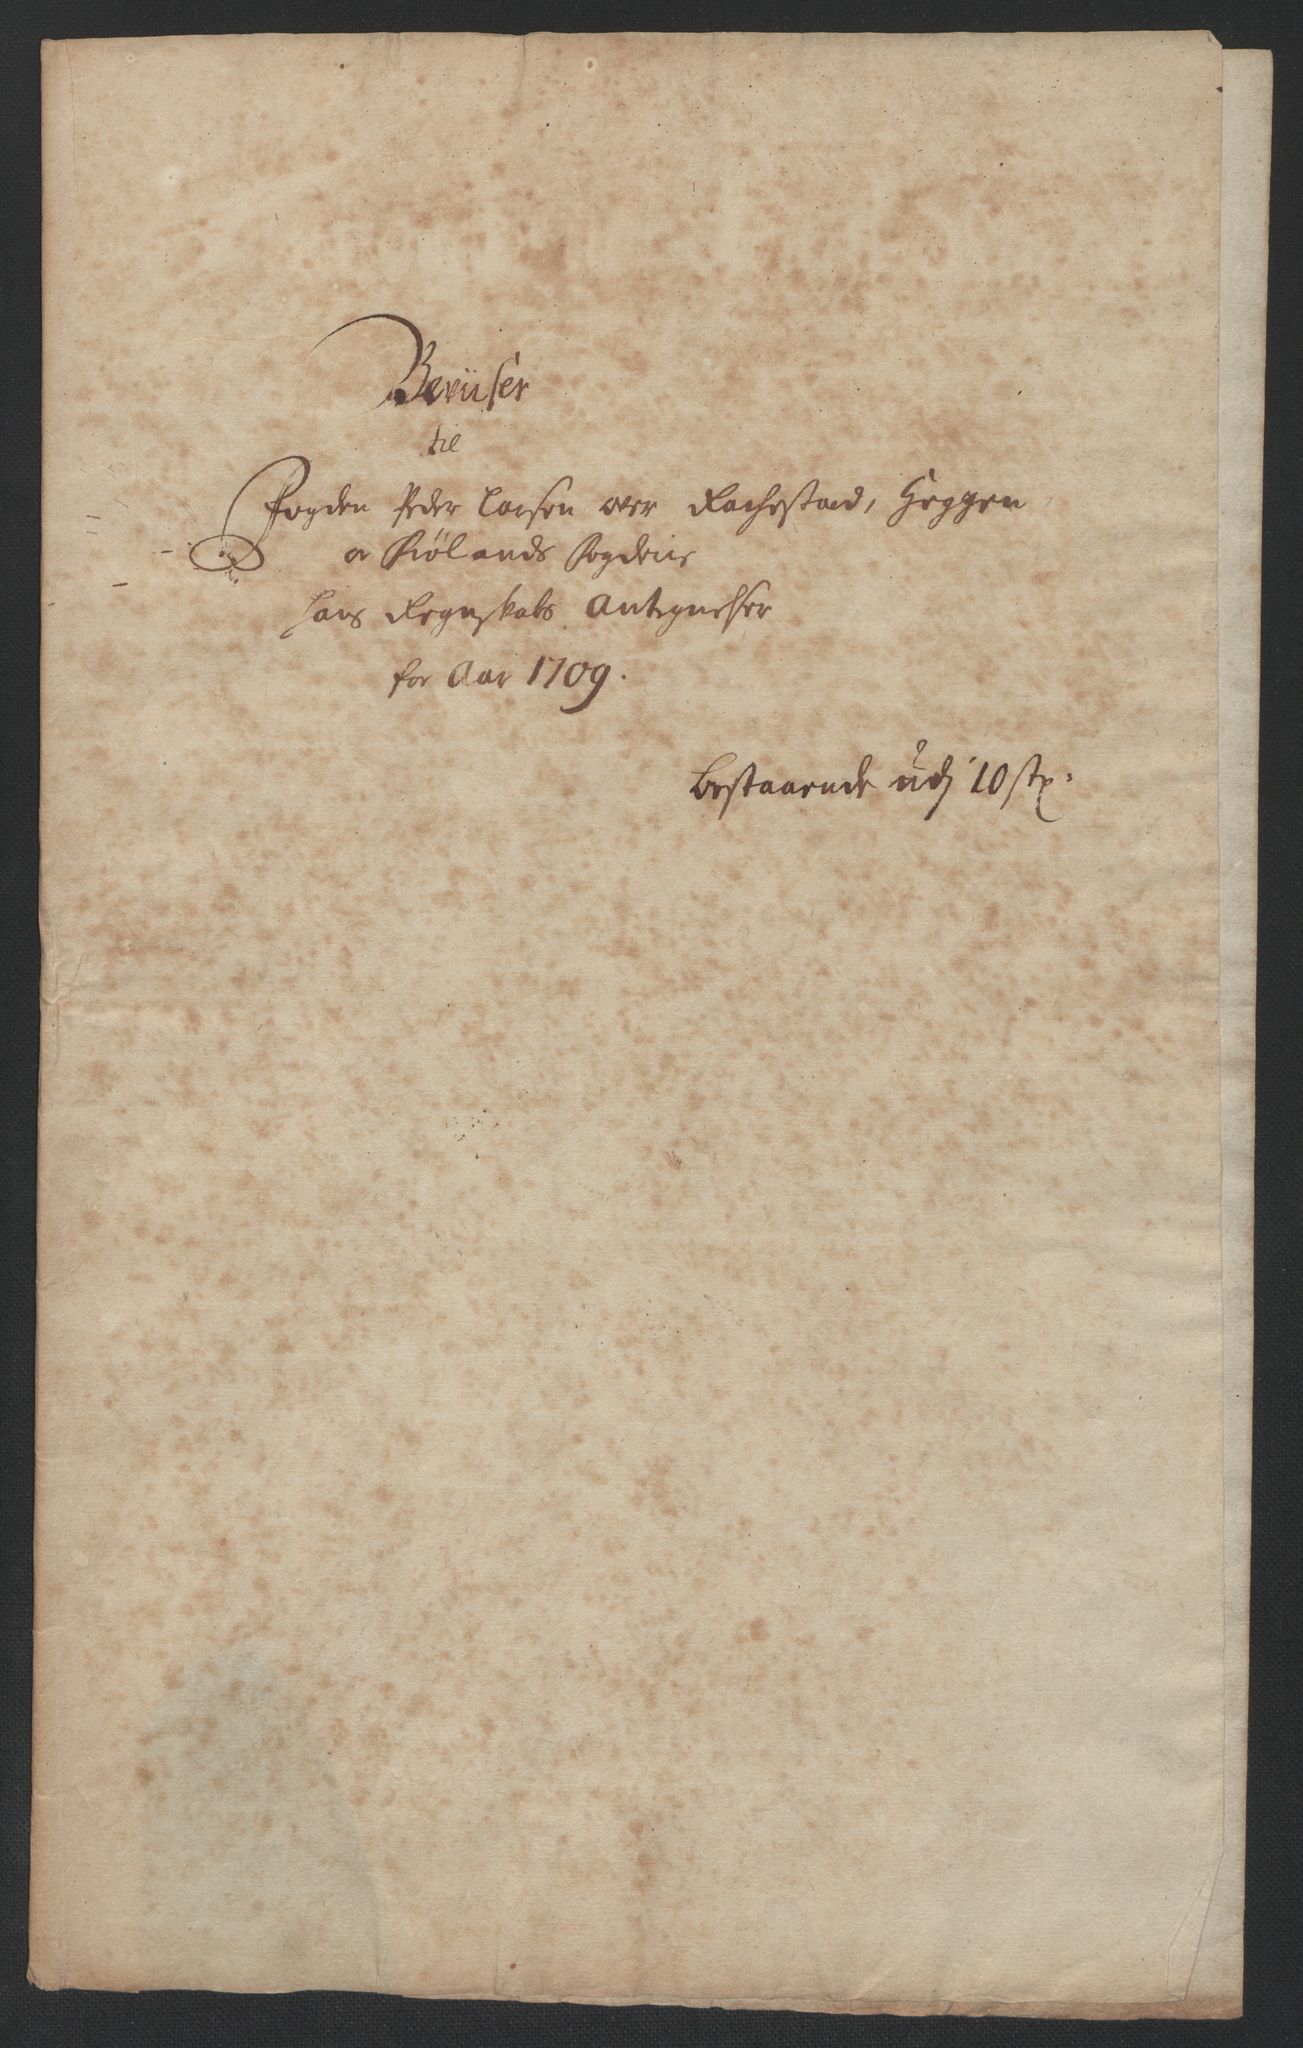 Beviiser
til
Fogden Peder Larsen over Rachestad, Heggen
oc Frølands fogderie
hans Regnskabs Antegnelser
for Aar 1709.
bestaaende udj 10 st: